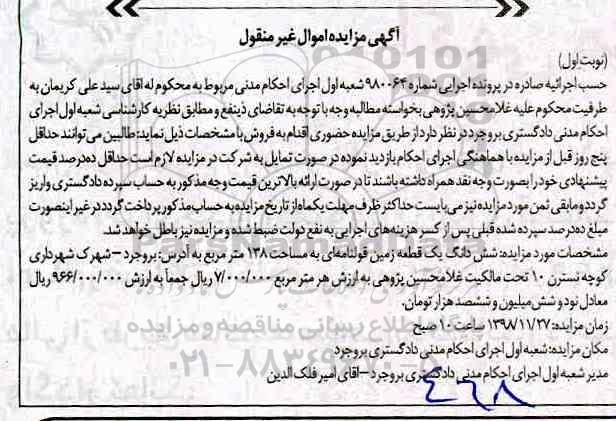 آگهی مزایده اموال غیر منقول
(نوبت اول)
حسب اجرائیه صادره در پرونده اجرایی شماره ۹۸۰۰۶۴ شعبه اول اجرای احکام مدنی مربوط به محکوم له اقای سید علی کریمان به
طرفیت محکوم علیه غلامحسین پژوهی بخواسته مطالبه وجه با توجه به تقاضای ذینفع و مطابق نظریه کارشناسی شعبه اول اجرای
احکام مدنی دادگستری بروجرد در نظر دارد از طریق مزایده حضوری اقدام به فروش با مشخصات ذیل نماید: طالبین می توانند حداقل
پنج روز قبل از مزایده با هماهنگی اجرای احکام بازدید نموده در صورت تمایل به شرکت در مزایده لازم است حداقل ده درصد قیمت
پیشنهادی خود را بصورت وجه نقد همراه داشته باشند تا در صورت ارائه بالاترین قیمت وجه مذکور به حساب سپرده دادگستری واریز
گردد و مابقی ثمن مورد مزایده نیز می بایست حداکثر ظرف مهلت یکماه از تاریخ مزایده به حساب مذکور پرداخت گردد در غیر اینصورت
مبلغ ده درصد سپرده شده قبلی پس از کسر هزینه های اجرایی به نفع دولت ضبط شده و مزایده نیز باطل خواهد شد.
مشخصات مورد مزایده: شش دانگ یک قطعه زمین قولنامه ای به مساحت ۱۳۸ متر مربع به آدرس: بروجرد – شهرک شهرداری
کوچه نسترن ۱۰ تحت مالکیت غلامحسین پژوهی به ارزش هر متر مربع ۷/۰۰۰/۰۰۰ ریال جمعاً به ارزش ۹۶۶/۰۰۰/۰۰۰ ریال
معادل نود و شش میلیون و ششصد هزار تومان.
زمان مزایده: ۱۳۹۸/۱۱/۲۷ ساعت ۱۰ صبح
مکان مزایده: شعبه اول اجرای احکام مدنی دادگستری بروجرد
مدیر شعبه اول اجرای احکام مدنی دادگستری بروجرد – اقای امیر فلک الدین
پایگاه اطلاع رسانی مناقصه و مزایده
۰۲۱-۸۸۳۴۹۶۷۰